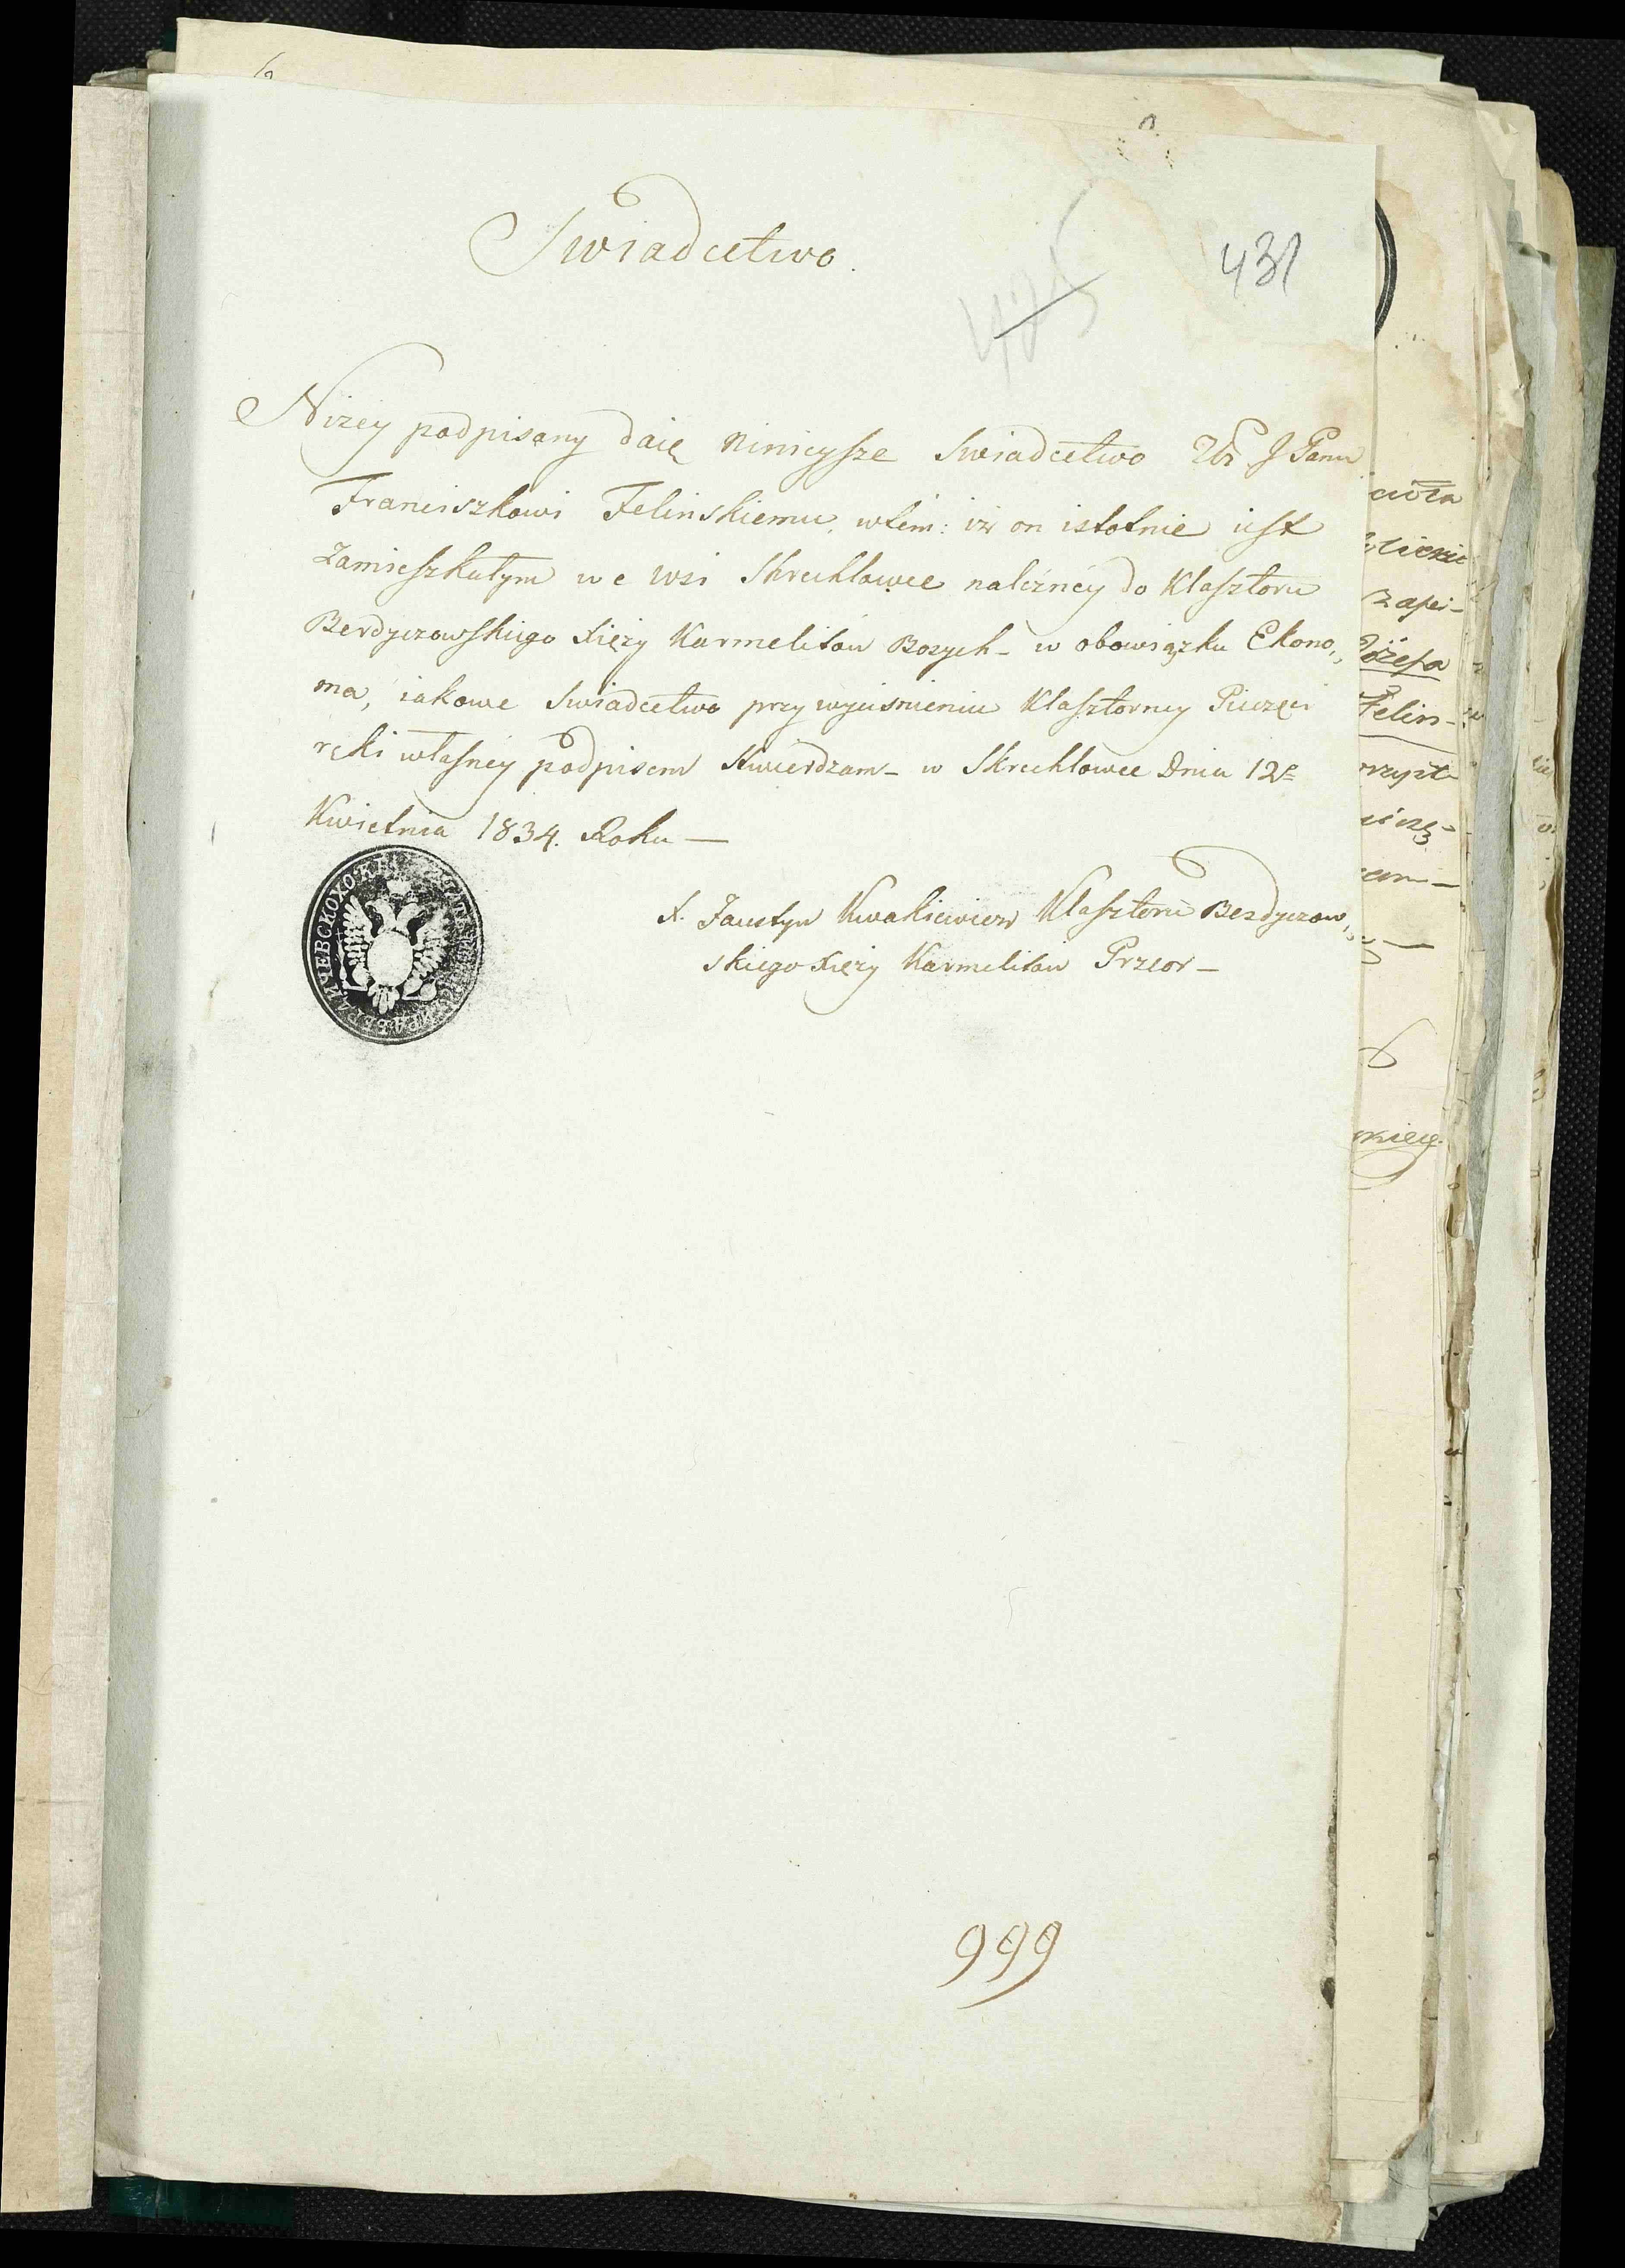 Swiadectwo.
431
Niżey podpisany daię ninieysze Swiadectwo Wr J Panu
Franciszkowi Felinskiemu, wtém: iż on istotnie iest
Zamieszkałym we wsi Skrechłowce należney do Klasztoru
Berdyczowskiego Xięży Karmelitów Bosych - w obowiązku Ekono„
ma, iakowe Swiadectwo przy wyciśnieniu Klasztorney Pieczęci
ręki własnéy podpisem Stwierdzam - w Skrechłowce Dnia 12º
Kwietnia 1834. Roku —
X. Faustyn Kwakiewicz Klasztoru Berdyczow„
skiego Xięży Karmelitów Przeor -
999